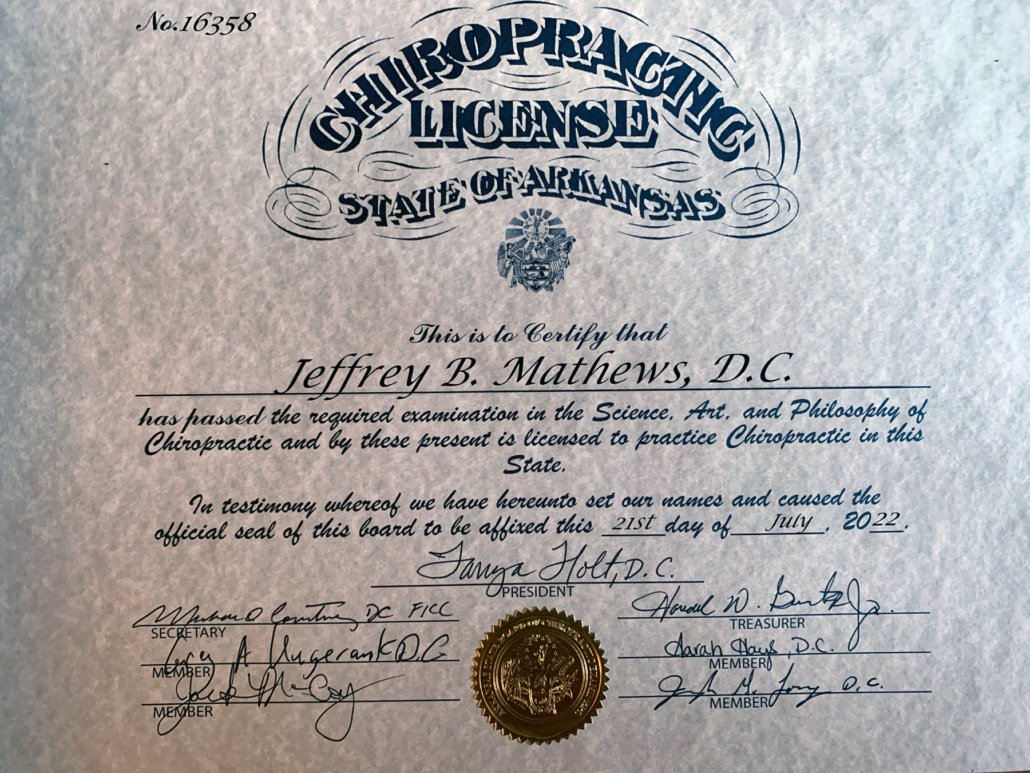 No.16358
CHIROPRACTIC
LICENSE
STATE OF ARKANSAS
This is to Certify that
Jeffrey B. Mathews, D.C.
has passed the required examination in the Science, Art, and Philosophy of
Chiropractic and by these present is licensed to practice Chiropractic in this
State.
In testimony whereof we have hereunto set our names and caused the
official seal of this board to be affixed this 21st day of July, 2022.
Tanya Holt, D.C.
PRESIDENT
DC FICC
SECRETARY
W.
TREASURER
A D.C.
MEMBER
Sarah Hays, D.C.
MEMBER
McCoy
MEMBER
M. D.C.
MEMBER